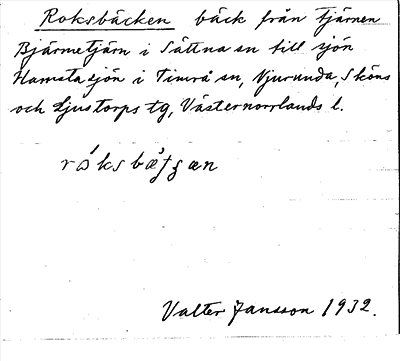 Roksbäcken bäck från tjärnen
Bjärmetjärn i Sättna sn till sjön
Hamstasjön i Timrå sn, Njurunda, Sköns
och Ljustorps tg, Västernorrlands l.
Valter Jansson 1932.